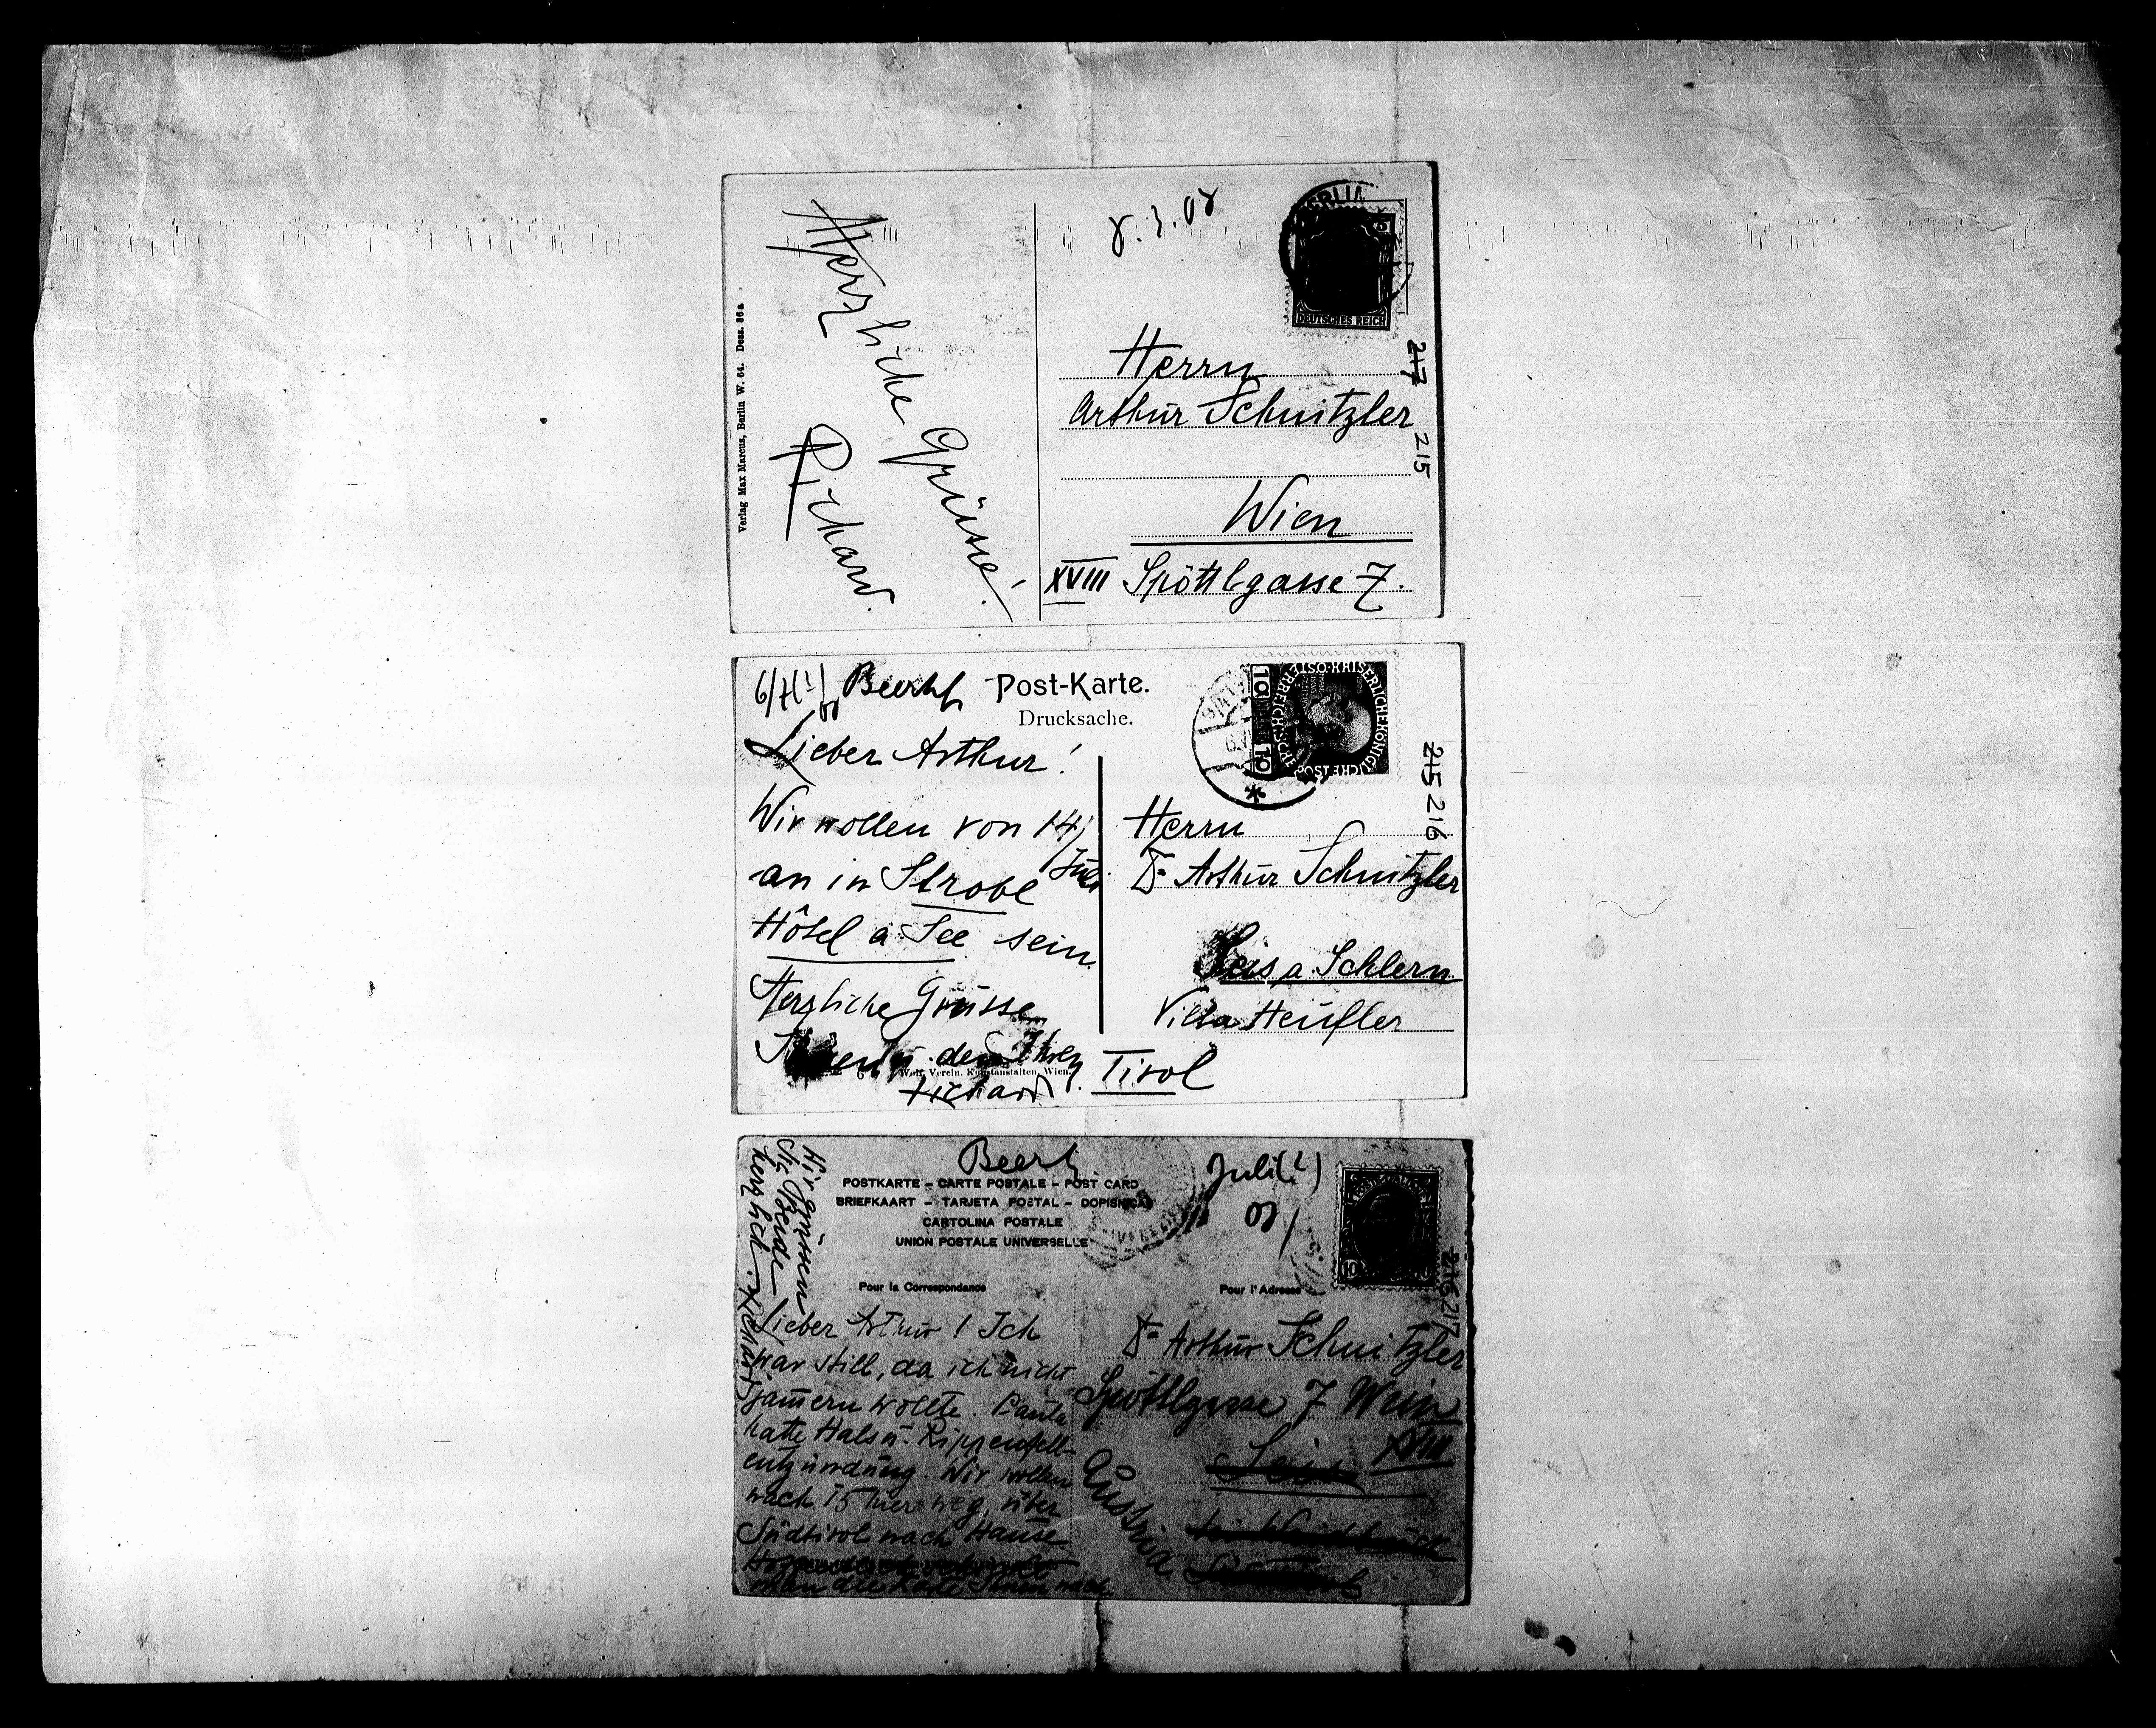 8.3.08
BERLIN
DEUTSCHES REICH
Herzliche Grüsse!
Richard.
Verlag Max Marcus, Berlin W. 64. Dess. 86a
Herrn
Arthur Schnitzler
Wien
XVIII Spöttlgasse 7.
217
215
6/7(?) 08 Beerh
Post-Karte.
Drucksache.
Lieber Arthur!
Wir wollen von 14/
Juli
an in Strobl
Hôtel a See sein.
Herzliche Grüsse
den Ihren
Richard.
Verein. Kunstanstalten, Wien.
10 10
Herrn
Dr Arthur Schnitzler
Seis a. Schlern
Villa Heufler
Tirol
215 216
Beerh
Juli(?)
08/
POSTKARTE – CARTE POSTALE – POST CARD
BRIEFKAART – TARJETA POSTAL – DOPISNICA
CARTOLINA POSTALE
UNION POSTALE UNIVERSELLE
Pour la Correspondance
Pour l'Adresse
Lieber Arthur! Ich
war still, da ich nicht
jam̄ern wollte. Paula
hatte Hals u. Rippenfell-
entzündung. Wir wollen
nach 15 hier weg, über
Südtirol nach Hause
Wir grüssen
Sie Beide
herzlich. Richard
Dr Arthur Schnitzler
Spöttlgasse 7 Wein
XVIII
Seis
Austria
216 217